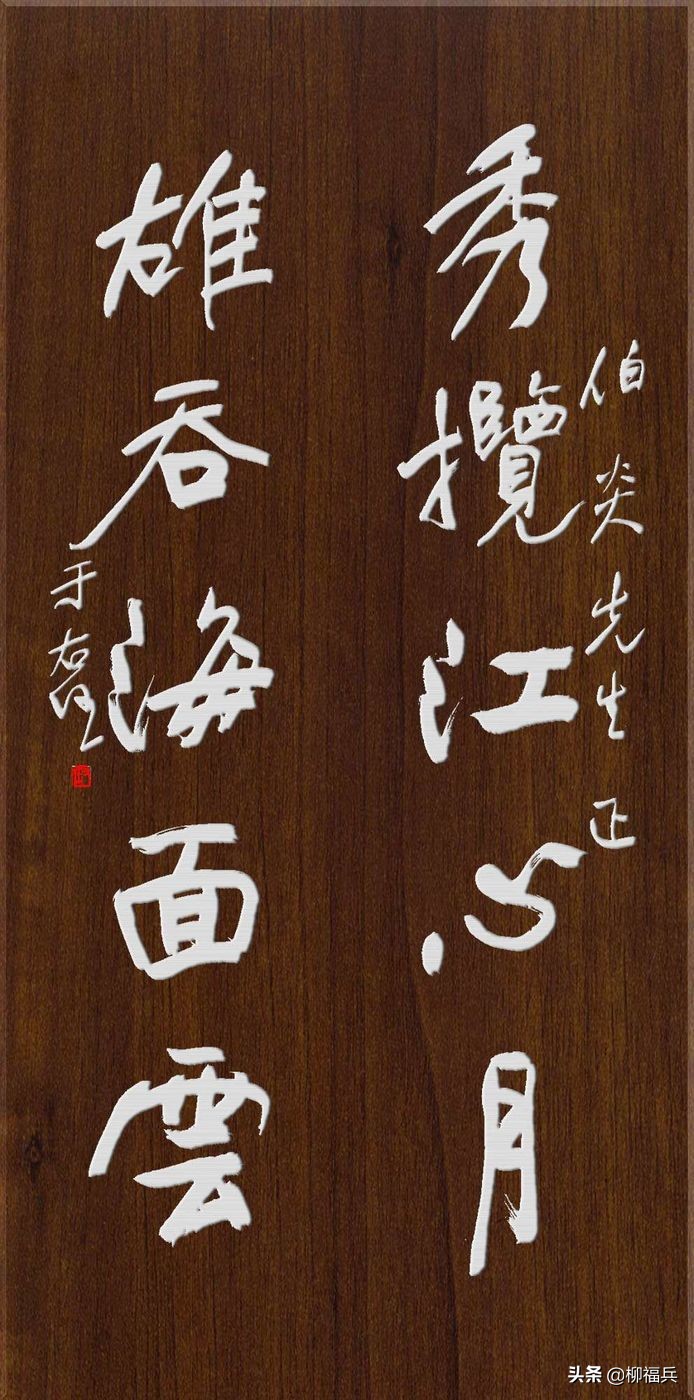 秀攬江心月
伯炎先生正
雄吞海面雲
于右任
头条 @柳福兵